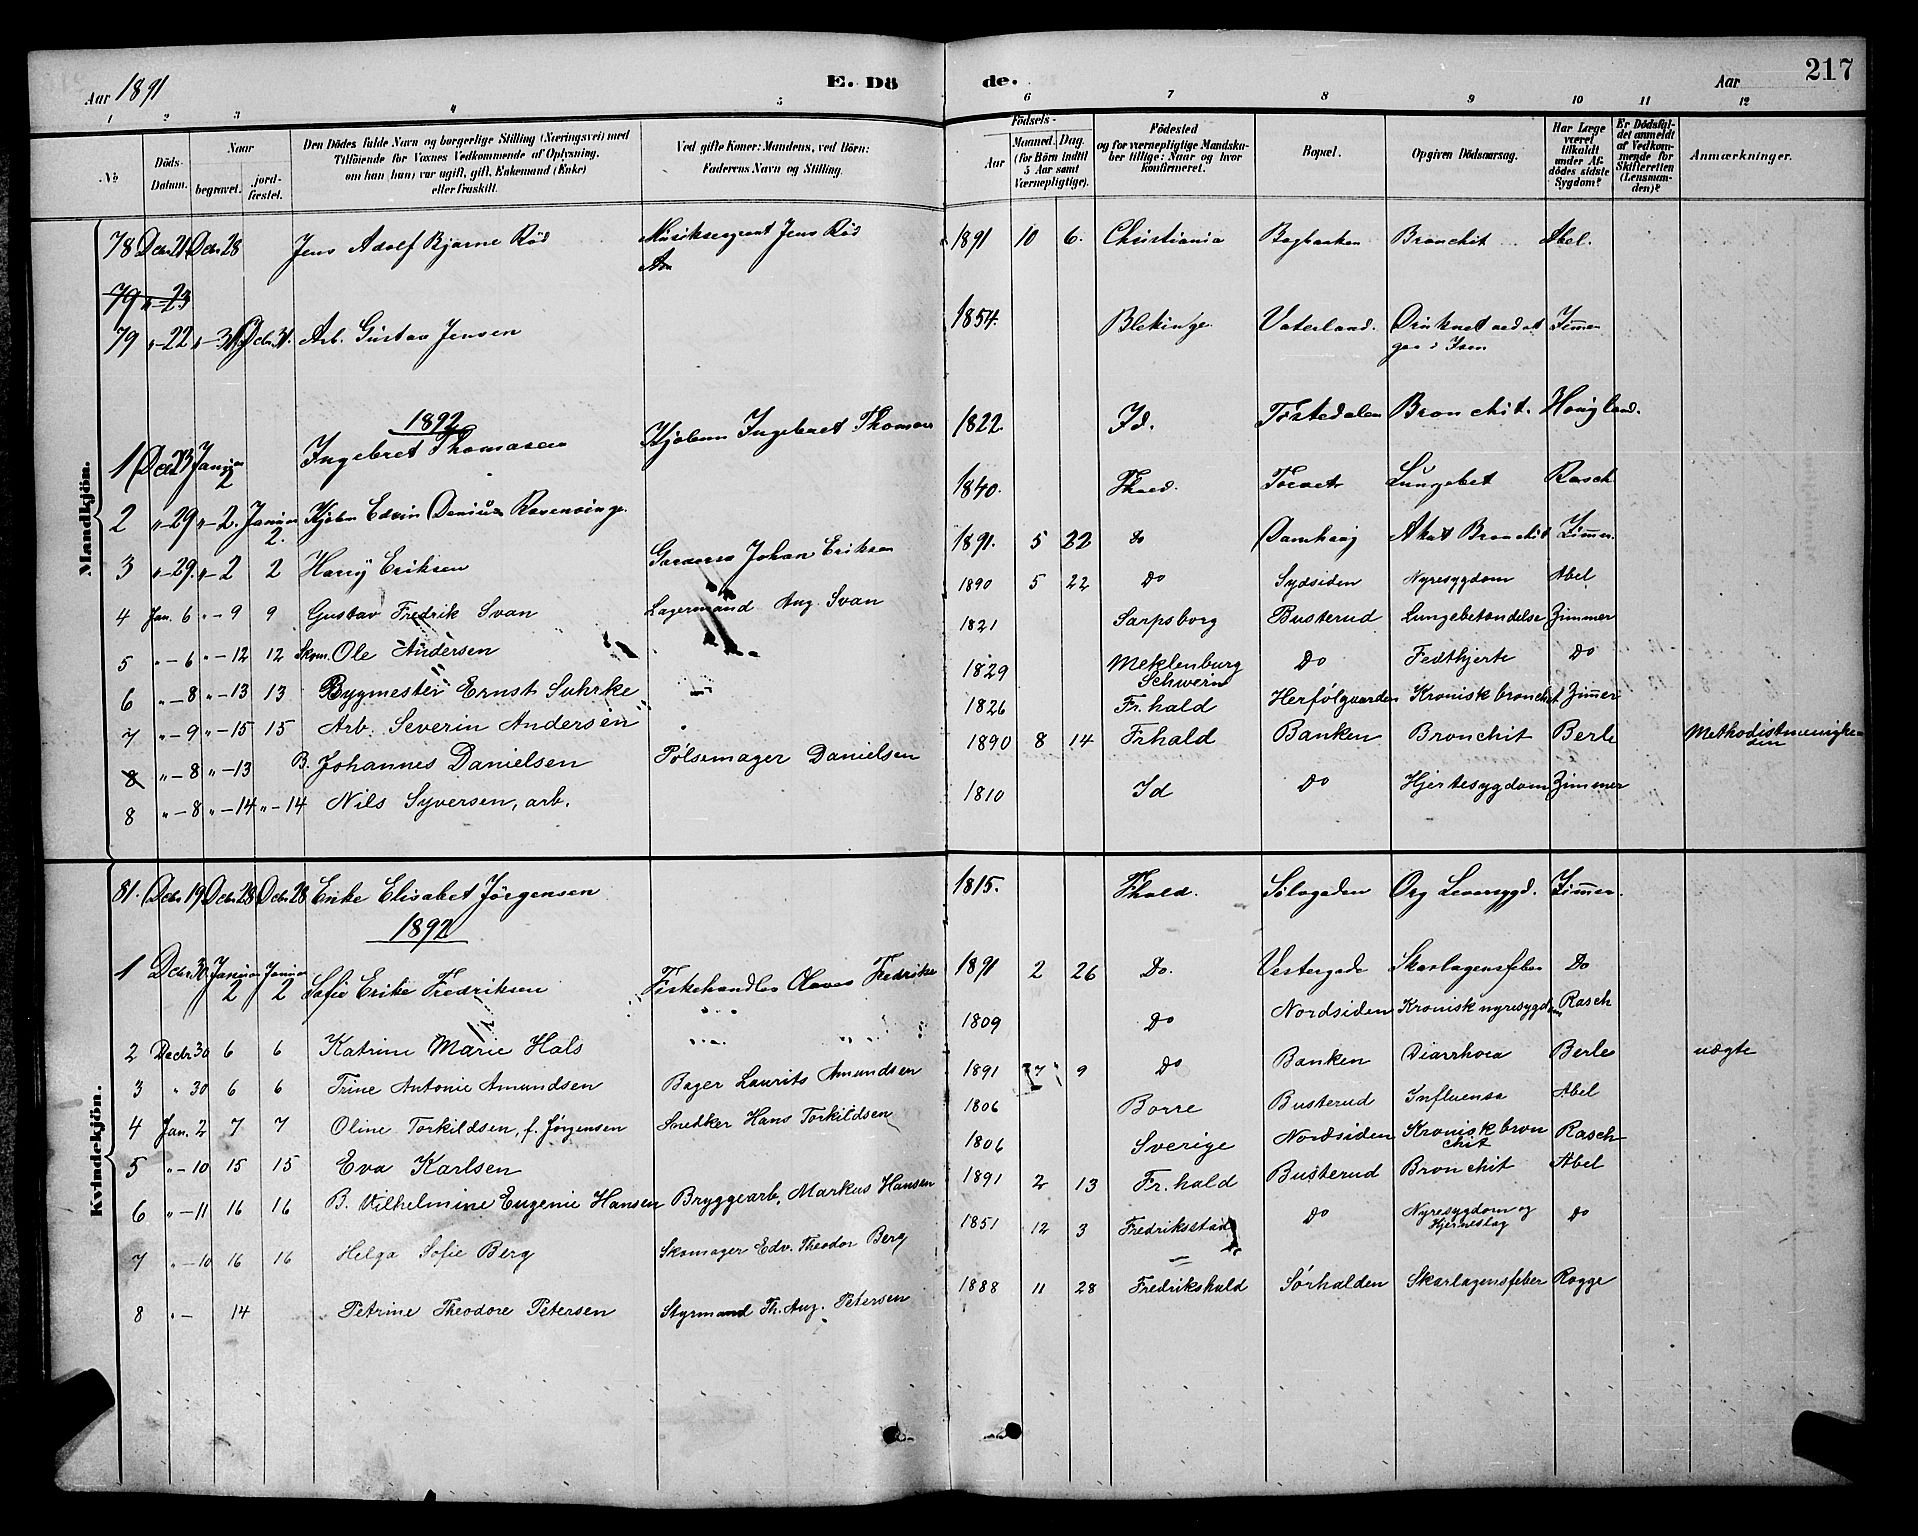 Aar 1891 E. Dö de. Aar 217
1 2 3 4 5 6 7 8 9 10 11 12
No
Döds-Datum.
Naar
begravet.
jord-fæstet.
Den Dödes fulde Navn og borgerlige Stilling (Næringsvei) med
Tilföiende for Voxnes Vedkommende af Oplysning,
om han (hun) var ugift, gift, Enkemand (Enke)
eller fraskilt.
Ved gifte Koner: Mandens, ved Börn:
Faderens Navn og Stilling.
Födsels-
Aar
Maaned. Dag.
(for Börn indtil
5 Aar samt
Værnepligtige).
Födested
og for værnepligtige Mandska-
ber tillige: Naar og hvor
konfirmeret.
Bopæl.
Opgiven Dödsaarsag.
Har Læge
været
tilkaldt
under Af-
dödes sidste
Sygdom?
Er Dödsfal-
det anmeldt
af Vedkom-
mende for
Skifteretten
(Lensman-
den)?
Anmærkninger.
Mandkjön.
78 Decbr 21 Decbr 28 Jens Adolf Bjarne Röd Musiksergeant Jens Röd 1891 10 6. Christiania Bagbanken Bronchit Abel.
79 " - 23
79 " - 22 " - 31 Decbr. 31. Arb. Gustav Jensen 1854. Blekinge. Vaterland.
1892
1 Decbr 23 Januar 2 Ingebret Thomasen Ingebret 1822. Id. Tistedalen Bronchit. Hougland.
2 " - 29 " - 2. Januar 2. Edvin 1840. Fhald. Torvet Lungebet Rasch
3 " - 29. " - 2 2 Harry Eriksen Johan Eriksen 1891. 5 22 do Damhaug Akut Bronchit Zimmer.
4 Jan. 6 " - 9 9 Gustav Fredrik Svan Lagermand Aug. Svan 1890 5 22 Do Sydsiden Nyresygdom Abel
5 " - 6 " - 12 12 Skom. Ole Andersen 1821 Sarpsborg Busterud Lungebetændelse Zimmer
6 " - 8 " - 13 13 Bygmester Ernst Suhrke 1829 Meklenburg Schwerin Do Fedthjerte Do
7 " - 9 " - 15 15 Arb. Severin Andersen 1826 Fr.hald Herfølgaarden Kronisk bronchit Zimmer
8 " - 8 " - 13 B. Johannes Danielsen Pølsemager Danielsen 1890 8 14 Frhald Banken Bronchit Berle Methodistmenigheden
8 " - 8 " - 14 " - 14 Nils Syversen, arb. 1810 Id Do Hjertesygdom Zimmer
Kvindekjön.
81. Decbr 19 Decbr 28 Decbr 28 Enke Elisabet Jörgensen 1815. Fhald. Sölvgaden Org Leversygd. Zimmer.
1892
1 Decbr 30 Januar 2 Januar 2 Sofie Erike Fredriksen Fiskehandler Fredrikse 1891 2 26 Do. Vestergade Skarlagensfeber Do
2 Decbr 30 6 6 Katrine Marie Hals 1809 Do Nordsiden Kronisk nyresygdom Rasch
3 " 30 6 6 Trine Antonie Amundsen Bager Laurits Amundsen 1891 7 9 Do Banken Diarrhoea Berle uægte
4 Jan. 2 7 7 Oline Torkildsen, f. Jørgensen Snedker Hans Torkildsen 1806 Borre Busterud Influensa Abel
5 " - 10 15 15 Eva Karlsen 1806 Sverige Nordsiden Kronisk bronchit Rasch
6 " - 11 16 16 B. Vilhelmine Eugenie Hansen Bryggearb. Markus Hansen 1891 2 13 Fr.hald Busterud Bronchit Abel
7 " - 10 16 16 Helga Sofie Berg Skomager Edv. Theodor Berg 1851 12 3 Fredriksstad Do Nyresygdom og Hjerneslag Do
8 " - 14 Petrine Theodore Petersen Styrmand Th. Aug. Petersen 1888 11 28 Fredrikshald Sørhalden Skarlagensfeber Rogge